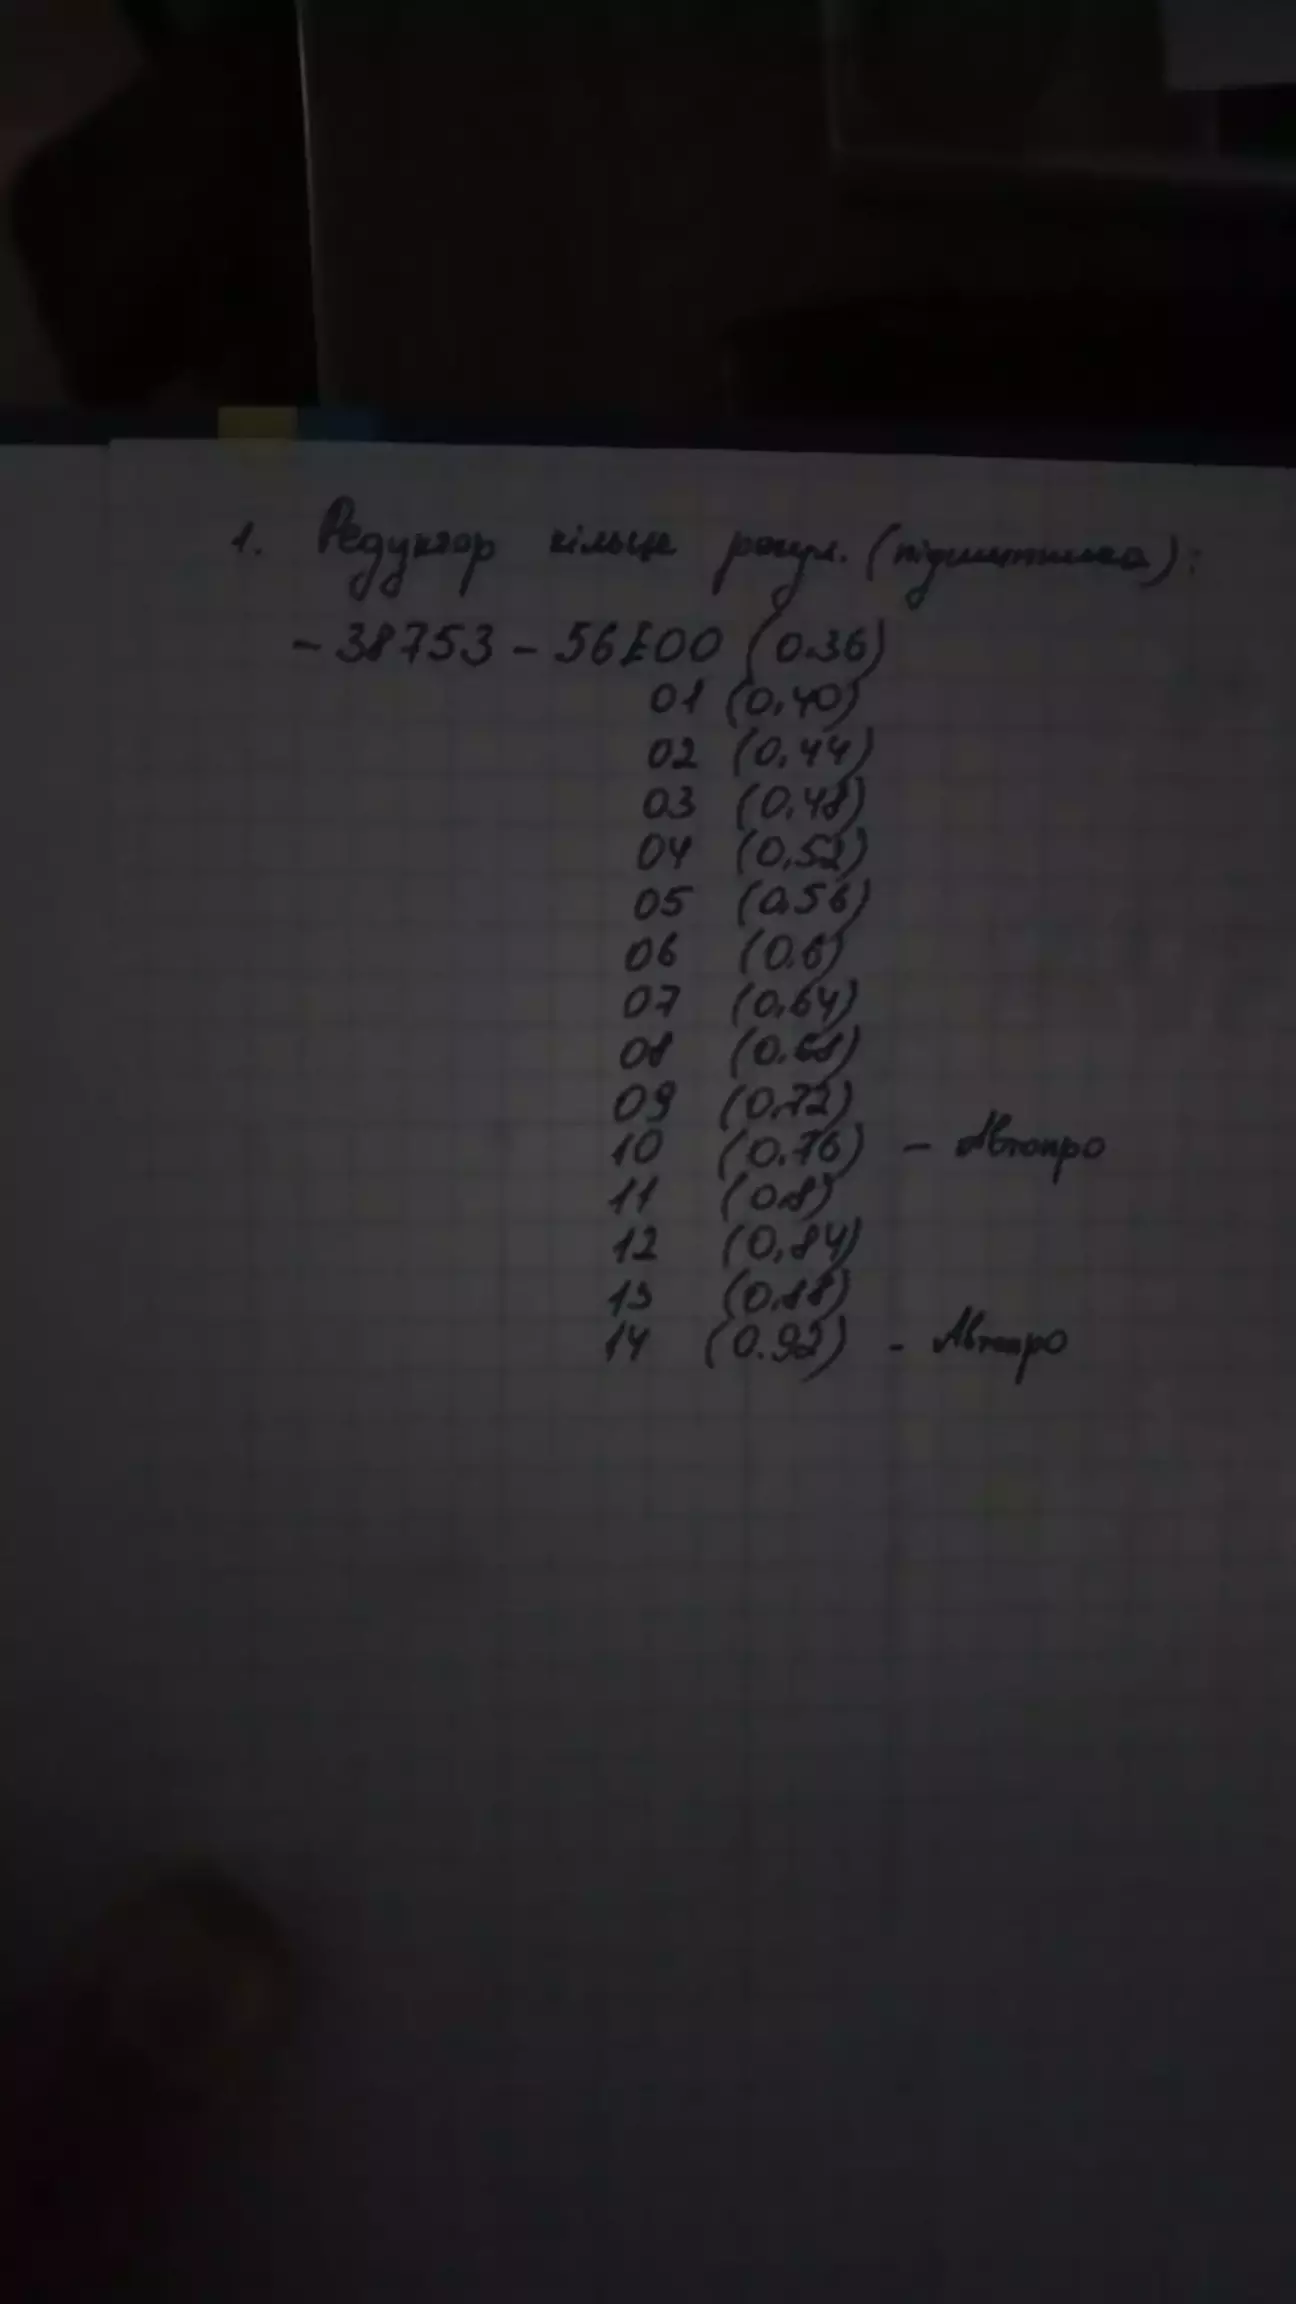 1. Редуктор кільце регул. (підшипника):
- 38753 - 56E00 (0.36)
01 (0,40)
02 (0,44)
03 (0,48)
04 (0,52)
05 (0,56)
06 (0.6)
07 (0,64)
08 (0.68)
09 (0.72)
10 (0.76) - Автопро
11 (0.8)
12 (0,84)
13 (0.88)
14 (0.92) - Автопро